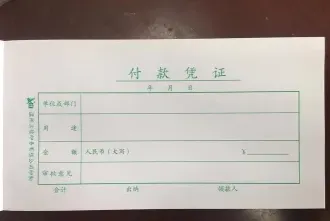 付款凭证
年 月 日
单位或部门
用途
金额 人民币（大写） ¥
审核意见
会计 出纳 领款人